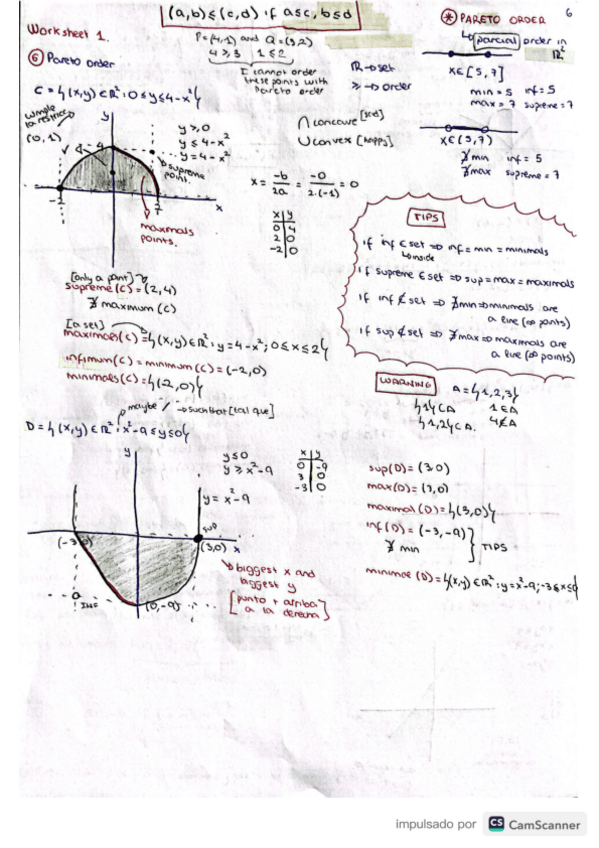 (a,b)≤(c,d) if a≤c, b≤d
⊛ PARETO ORDER
6
↳ parcial order in ℝ²
Worksheet 1.
P=(4,1) and Q=(3,2)
4≥3 1≤2
I cannot order these points with Pareto order
ℝ→set
≥→order
x∈[5,7]
min = 5 inf = 5
max = 7 supreme = 7
⑥ Pareto order
C = {(x,y)∈ℝ² : 0≤y≤4-x²}
(0,1)
y
4
-2
2
x
y≥0
y≤4-x²
y=4-x²
supreme point.
maximals points.
∩ concave [sad]
∪ convex [happy]
x∈(5,7)
∄ min inf = 5
∄ max supreme = 7
x = -b/2a = -0/2·(-1) = 0
x y
0 4
2 0
-2 0
TIPS
if inf ∈ set ⇒ inf = min = minimals
↳ inside
if supreme ∈ set ⇒ sup = max = maximals
if inf ∉ set ⇒ ∄ min ⇒ minimals are
a line (∞ points)
if sup ∉ set ⇒ ∄ max ⇒ maximals are
a line (∞ points)
[only a point]
supreme (C) = (2,4)
∄ maximum (C)
[a set]
maximals(C) = {(x,y)∈ℝ² : y=4-x²; 0≤x≤2}
infimum(C) = minimum(C) = (-2,0)
minimals(C) = {(2,0)}
WARNING
A = {1,2,3}
{1}⊂A 1∈A
{1,2}⊂A. 4∉A
maybe → such that [tal que]
D = {(x,y)∈ℝ² : x²-9≤y≤0}
y
y≤0
y≥x²-9
y=x²-9
x y
0 -9
3 0
-3 0
sup
(-3,0)
(3,0)
x
INF
(0,-9)
biggest x and
biggest y
[punto + arriba
a la derecha]
sup(D) = (3,0)
max(D) = (3,0)
maximal (D) = {(3,0)}
inf(D) = (-3,-9)
∄ min
TIPS
minimal (D) = {(x,y)∈ℝ² : y=x²-9; -3≤x≤0}
impulsado por CS CamScanner